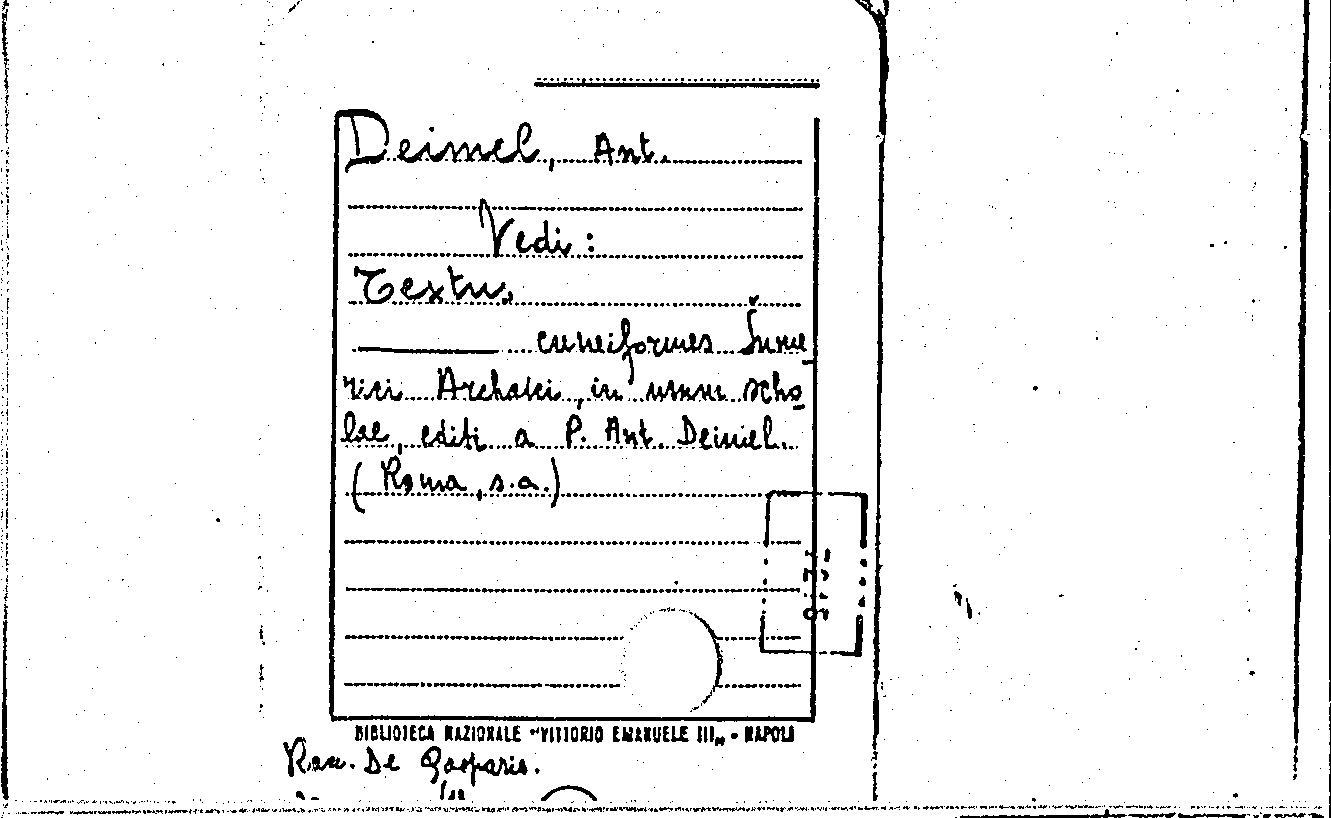 Deimel, Ant.
Vedi:
Textus
cuneiformes Šume_
rici Archaici, in usum scho_
lae, editi a P. Ant. Deimel.
(Roma, s.a.)
BIBLIOTECA NAZIONALE "VITTORIO EMANUELE III„ - NAPOLI
De Gasparis.